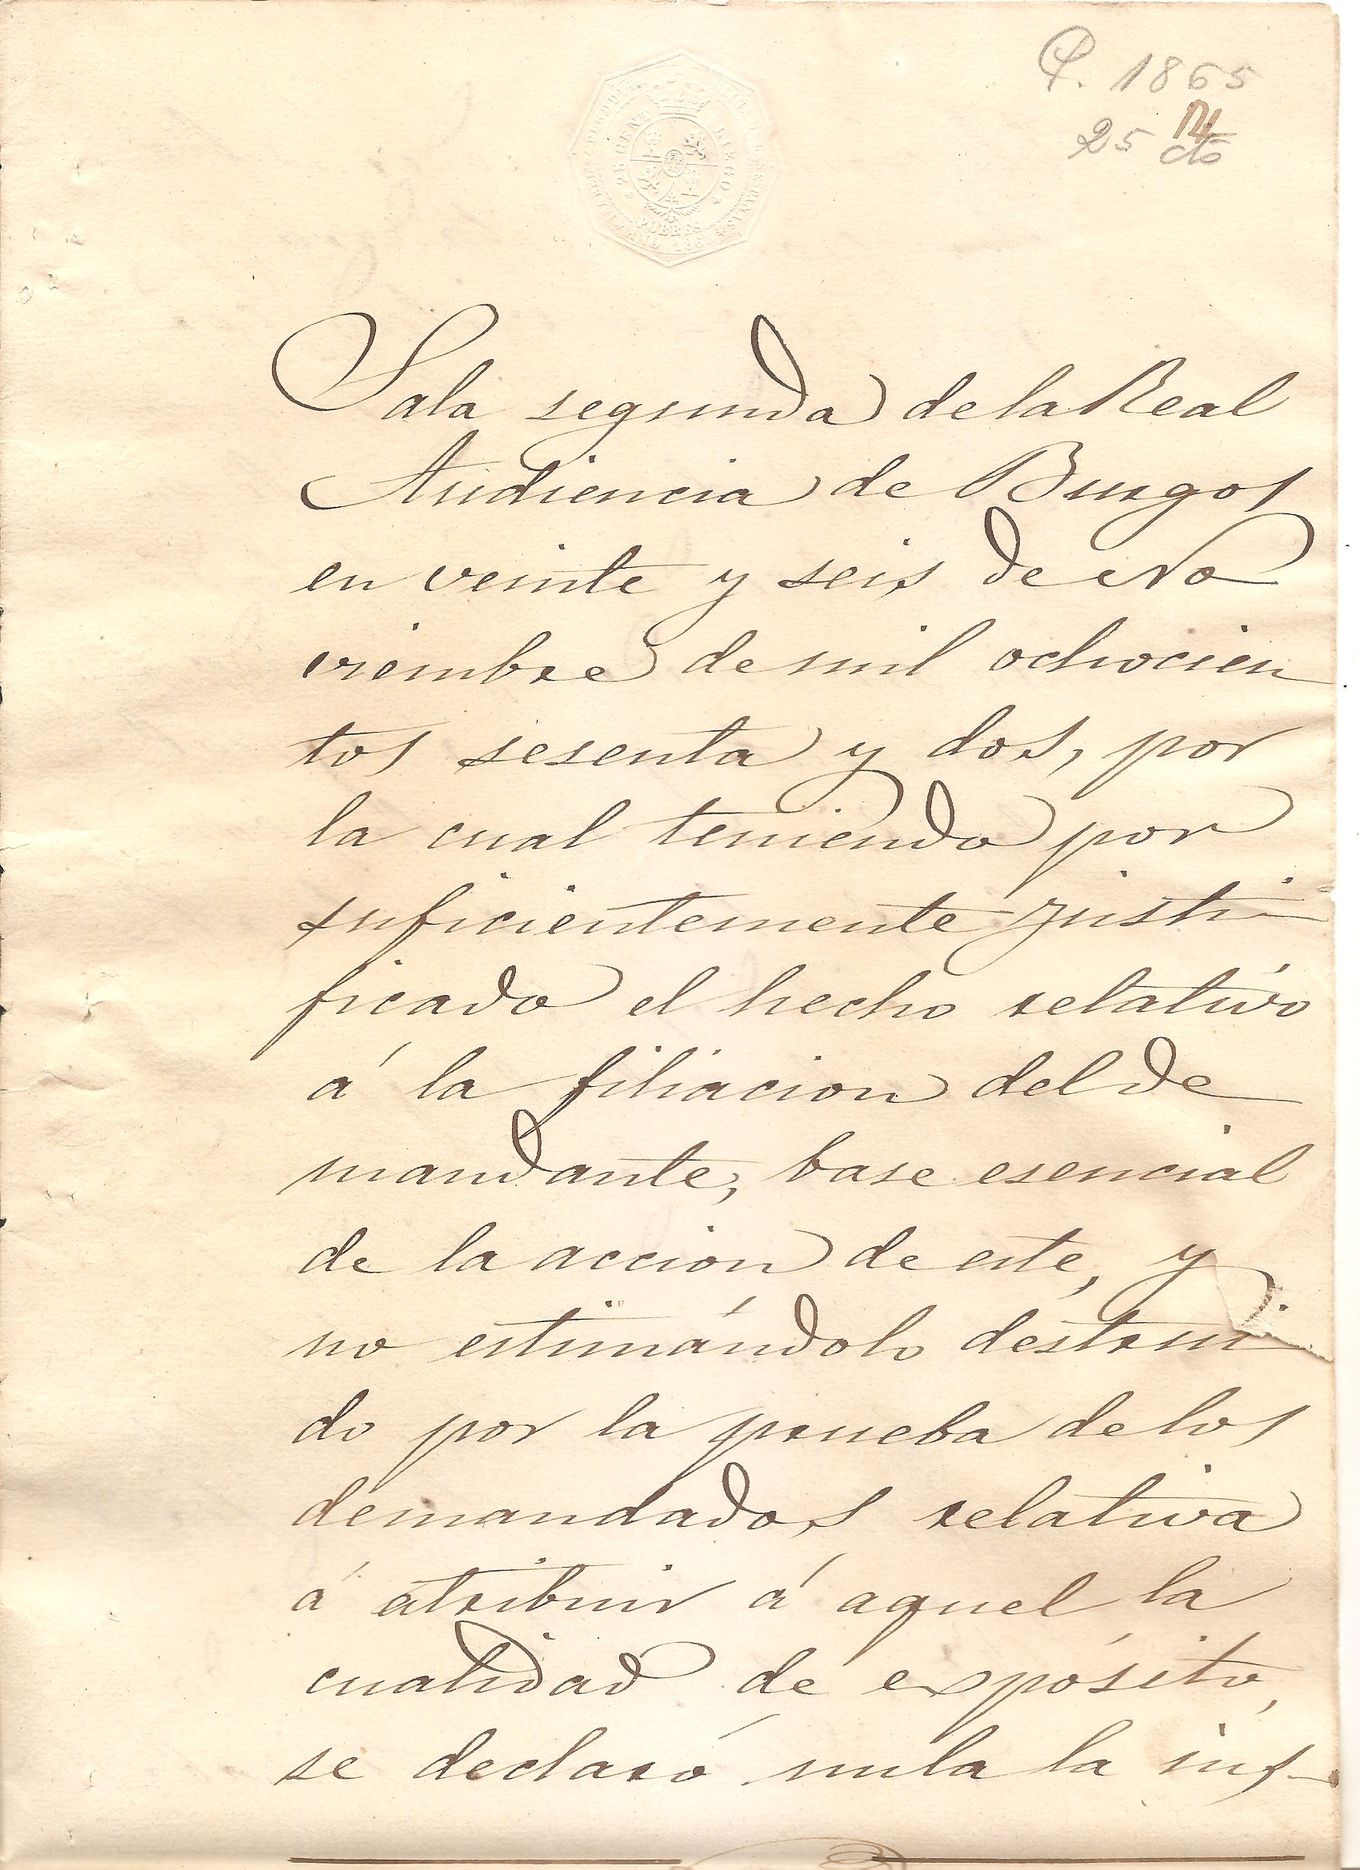 P. 1865
25 cts
POBRES
Sala segunda de la Real
Audiencia de Burgos
en veinte y seis de No
viembre de mil ochocien
tos sesenta y dos, por
la cual teniendo por
suficientemente justi
ficado el hecho relativo
á la filiacion del de
mandante, base esencial
de la accion de este, y
no estimándolo destrui
do por la prueba de los
demandados relativa
á atribuir á aquel la
cualidad de expósito,
se declaró nula la ins-